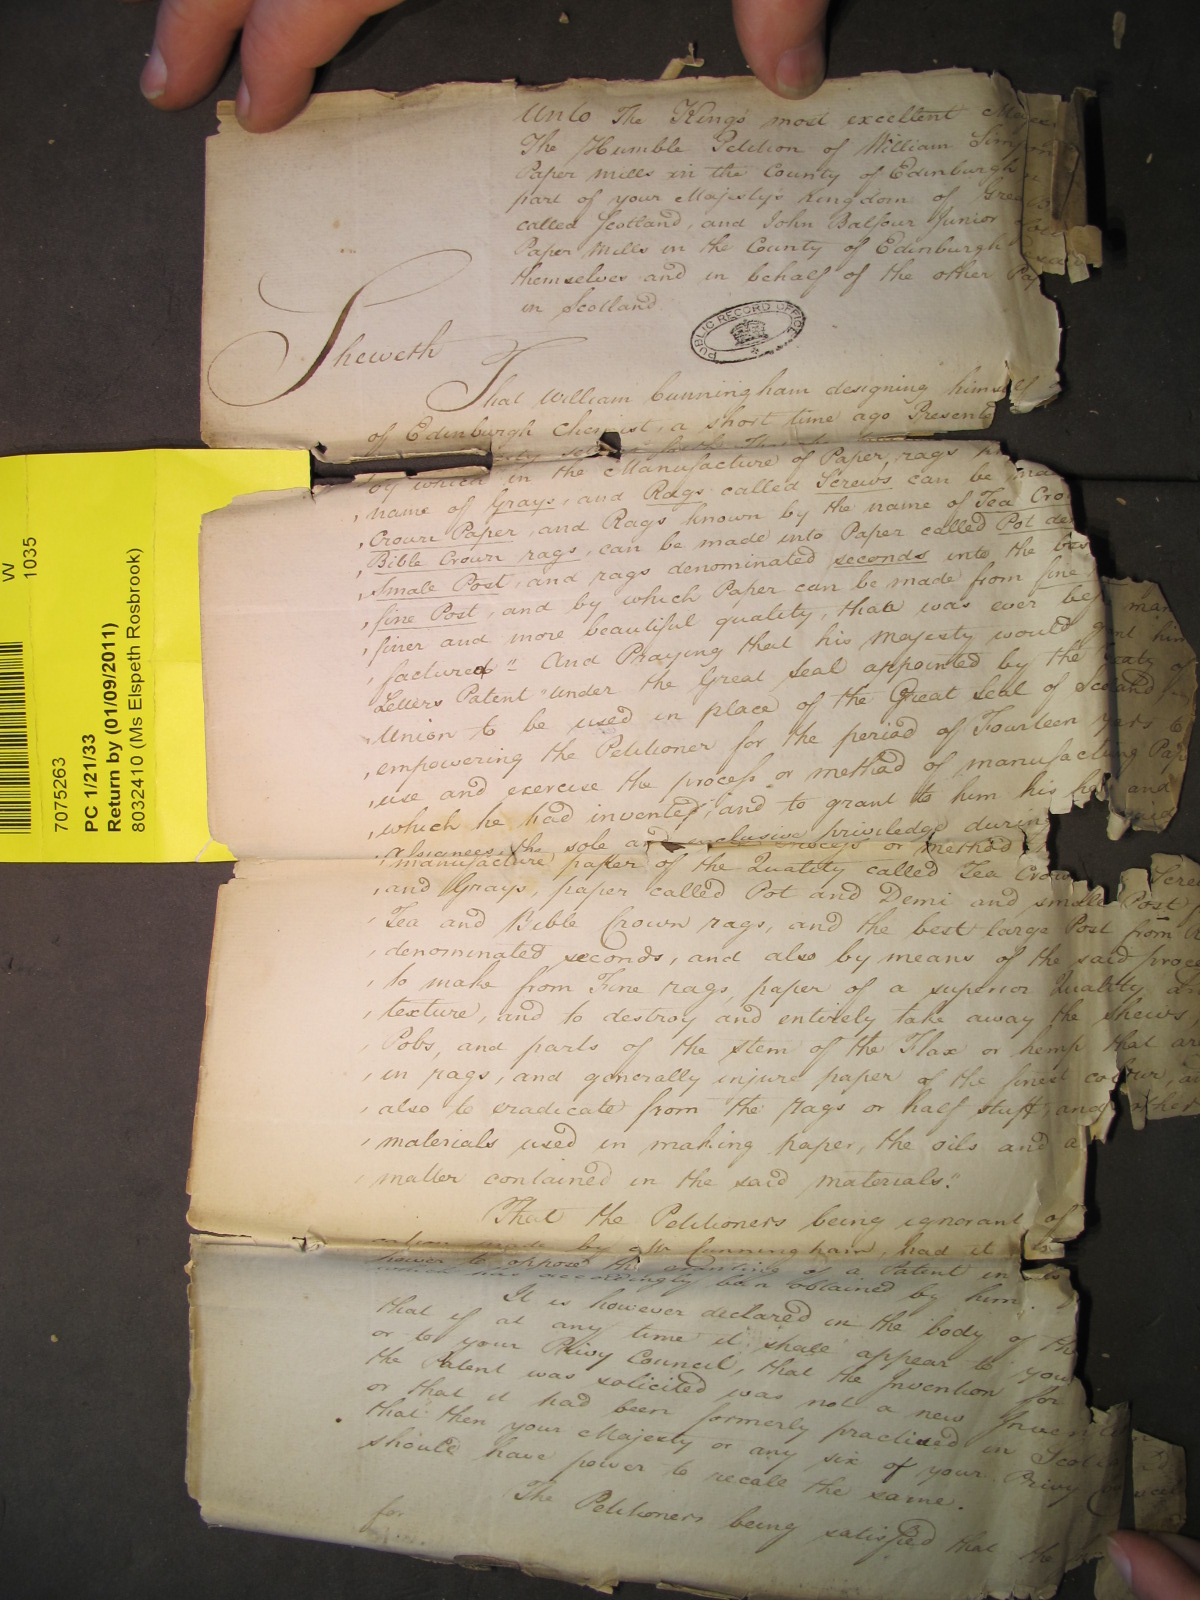 Unto The King's most excellent
The Humble Petition of William
Paper Mills in the County of Edinburgh
part of your Majesty's Kingdom of
called Scotland, and John Balfour Junior
Paper Mills in the County of Edinburgh said
themselves and in behalf of the other
in Scotland
PUBLIC RECORD OFFICE
Sheweth
That William Cunningham designing himself
of Edinburgh Chemist, a short time ago Presented
by which in the Manufacture of Paper, rags
name of Grays, and Rags called Screws can be
Crown Paper, and Rags known by the name of Tea
Bible Crown rags, can be made into Paper called Pot
small Post, and rags denominated seconds into the best
fine Post, and by which Paper can be made from fine
finer and more beautiful quality, than was ever
factured" And Praying that his Majesty would grant him
Letters Patent "under the Great Seal appointed by the Treaty of
Union to be used in place of the Great Seal of Scotland
empowering the Petitioner for the period of Fourteen years to
use and exercise the process or method of manufacturing
which he had invented, and to grant to him his and
assignees the sole and exclusive priviledge during
manufacture paper of the Quality called Tea Crown
and Grays, paper called Pot and Demi and small Post
Tea and Bible Crown rags, and the best large Post from
denominated seconds, and also by means of the said
to make from Fine rags, paper of a superior Quality
texture, and to destroy and entirely take away the shews,
Pobs, and parts of the stem of the Flax or hemp that are
in rags, and generally injure paper of the finest colour,
also to eradicate from the rags or half stuff, and other
materials used in making paper, the oils and
matter contained in the said materials."
That the Petitioners being ignorant of
made by Mr Cunningham, had it
power to oppose the granting of a Patent in
which has accordingly been obtained by him.
It is however declared in the body of
that if at any time it shall appear to
or to your Privy Council, that the Invention for
the Patent was solicited was not a new Invention
or that it had been formerly practised in
that then your Majesty or any six of your Privy
should have power to recall the same.
The Petitioners being satisfied that the
for
W
1035
7075263
PC 1/21/33
Return by (01/09/2011)
8032410 (Ms Elspeth Rosbrook)